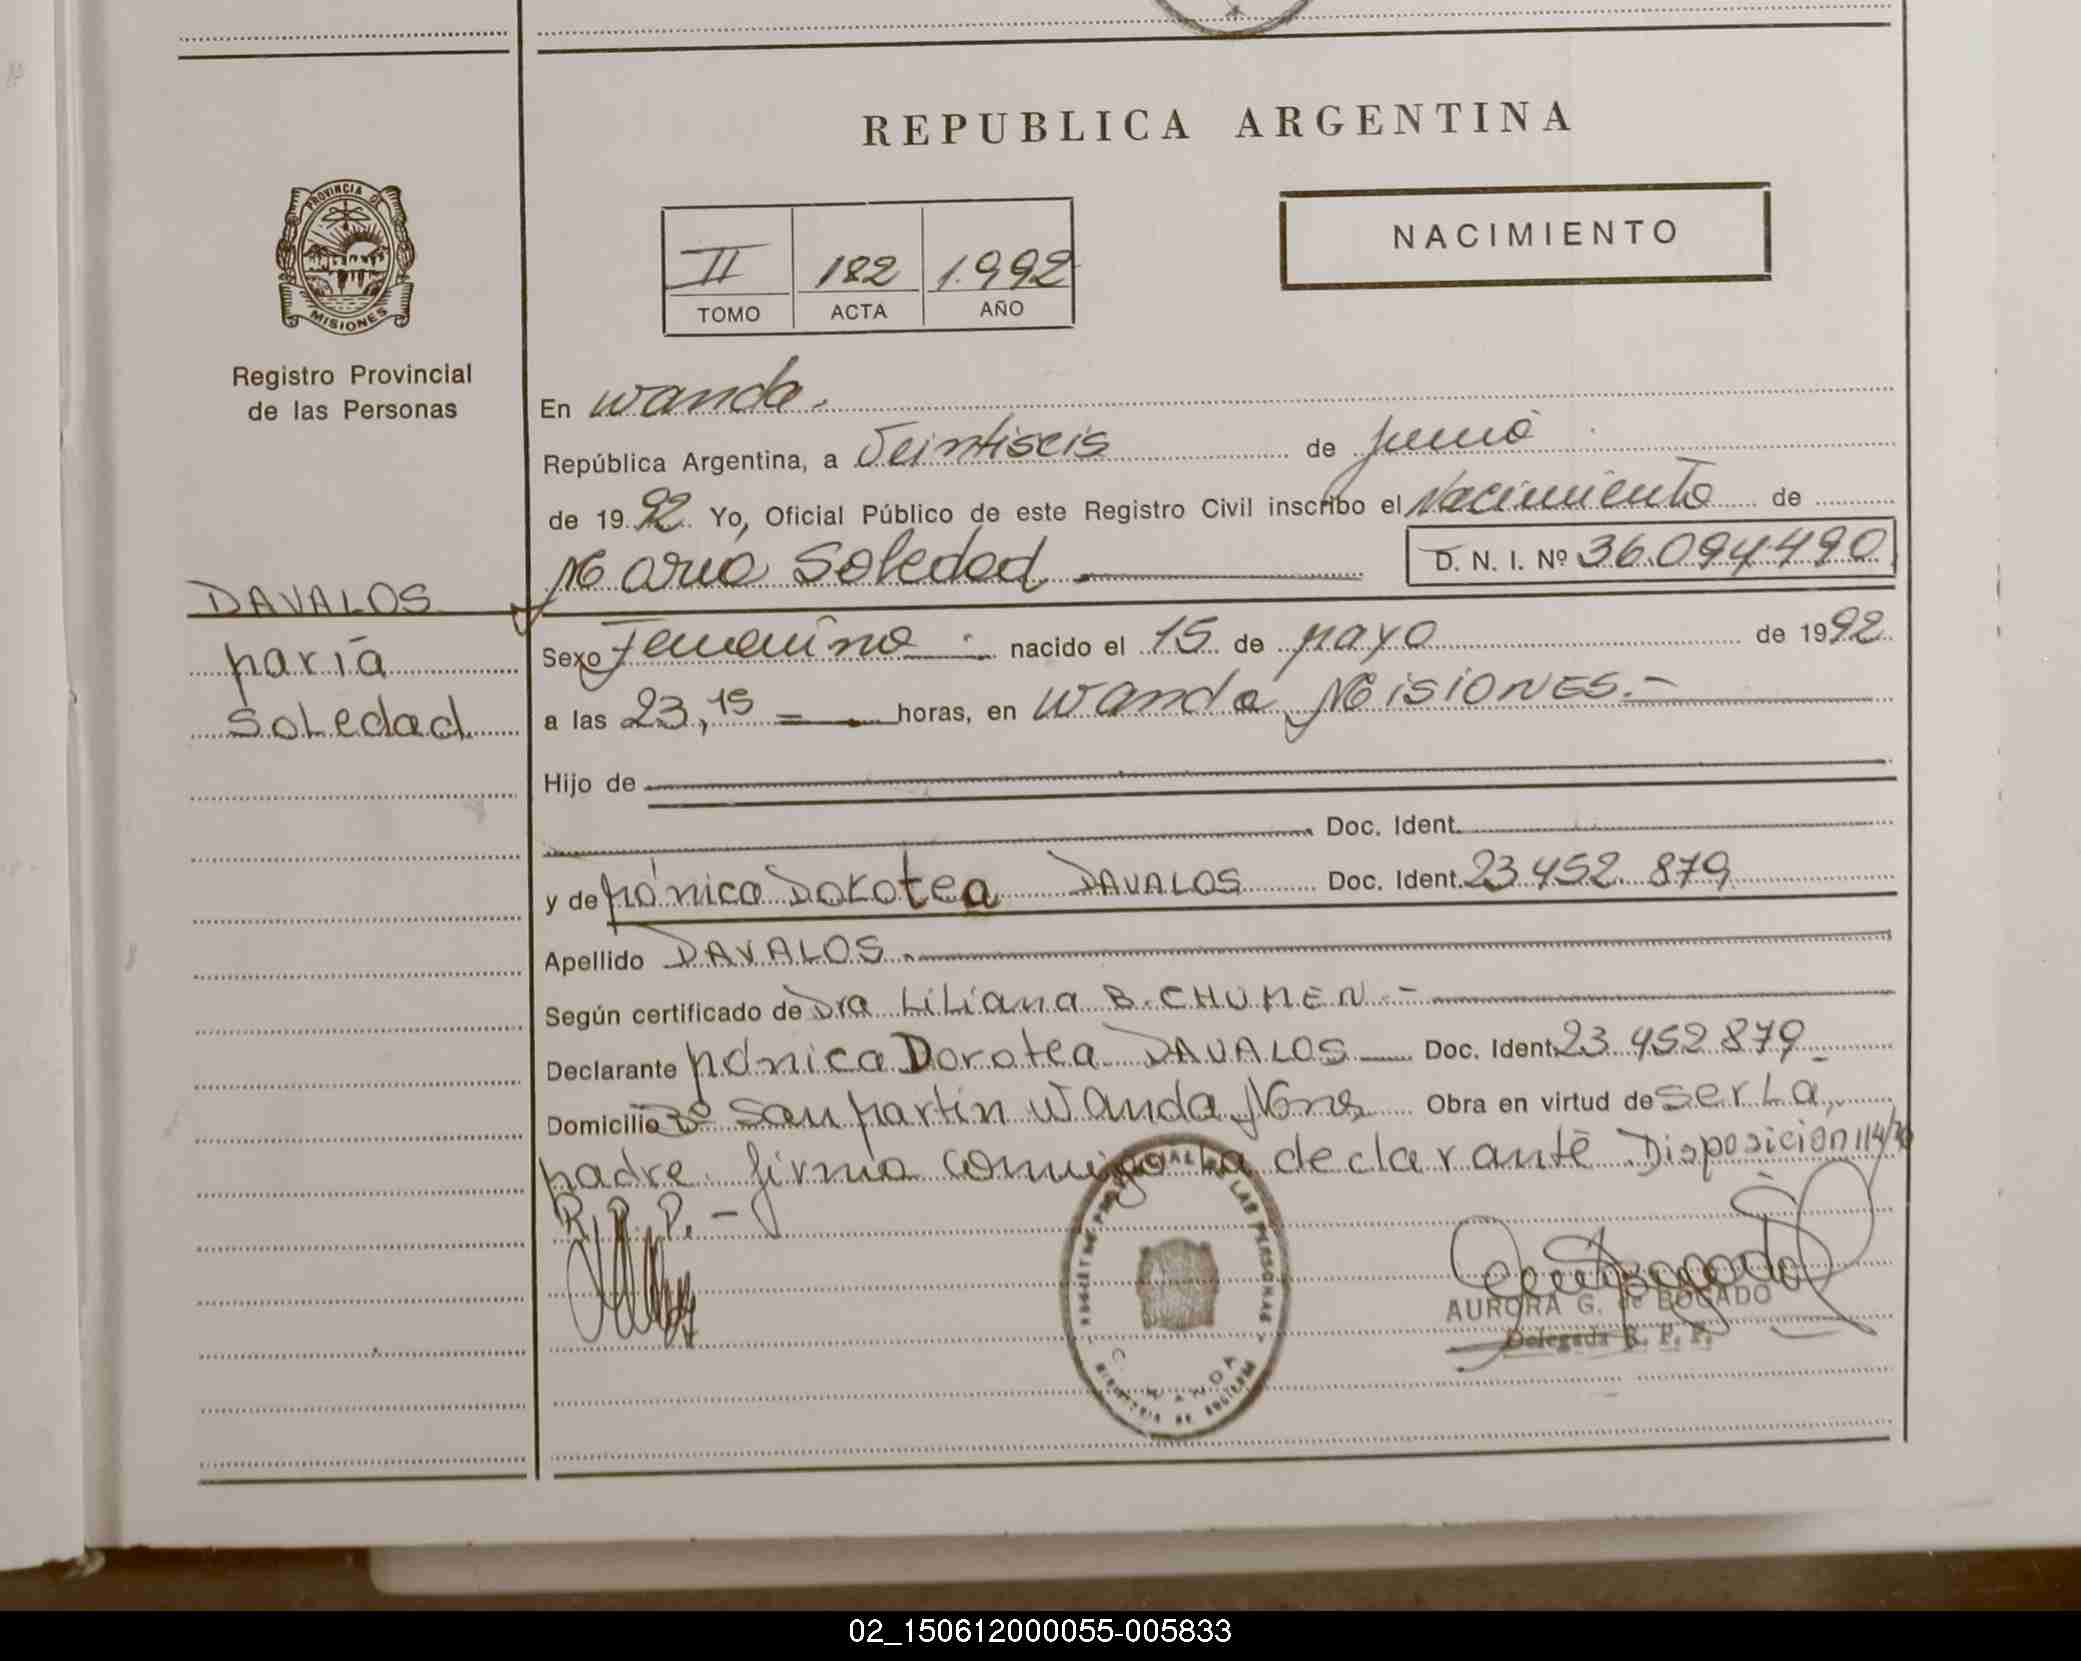 REPUBLICA ARGENTINA
NACIMIENTO
II 182 1.992
TOMO ACTA AÑO
PROVINCIA DE
MISIONES
Registro Provincial
de las Personas
DAVALOS
María
Soledad
En Wanda.
República Argentina, a Veintiseis de Junio
de 1992 Yo, Oficial Público de este Registro Civil inscribo el Nacimiento de
María Soledad D. N. I. Nº 36.094.490
Sexo Femenino nacido el 15 de Mayo de 1992
a las 23,15 horas, en Wanda Misiones.-
Hijo de
Doc. Ident.
y de Mónica Dorotea DAVALOS Doc. Ident. 23 452 879
Apellido DAVALOS.
Según certificado de Dra Liliana B. CHUMEN.-
Declarante Mónica Dorotea DAVALOS Doc. Ident. 23 452 879
Domicilio Bº San Martín Wanda Mnes Obra en virtud de ser La
Madre. firma conmigo La declarante Disposicion 114/
R. P. P. -
LAS PERSONAS
WANDA
AURORA G. de BOGADO
Delegada R. P. P.
02_150612000055-005833